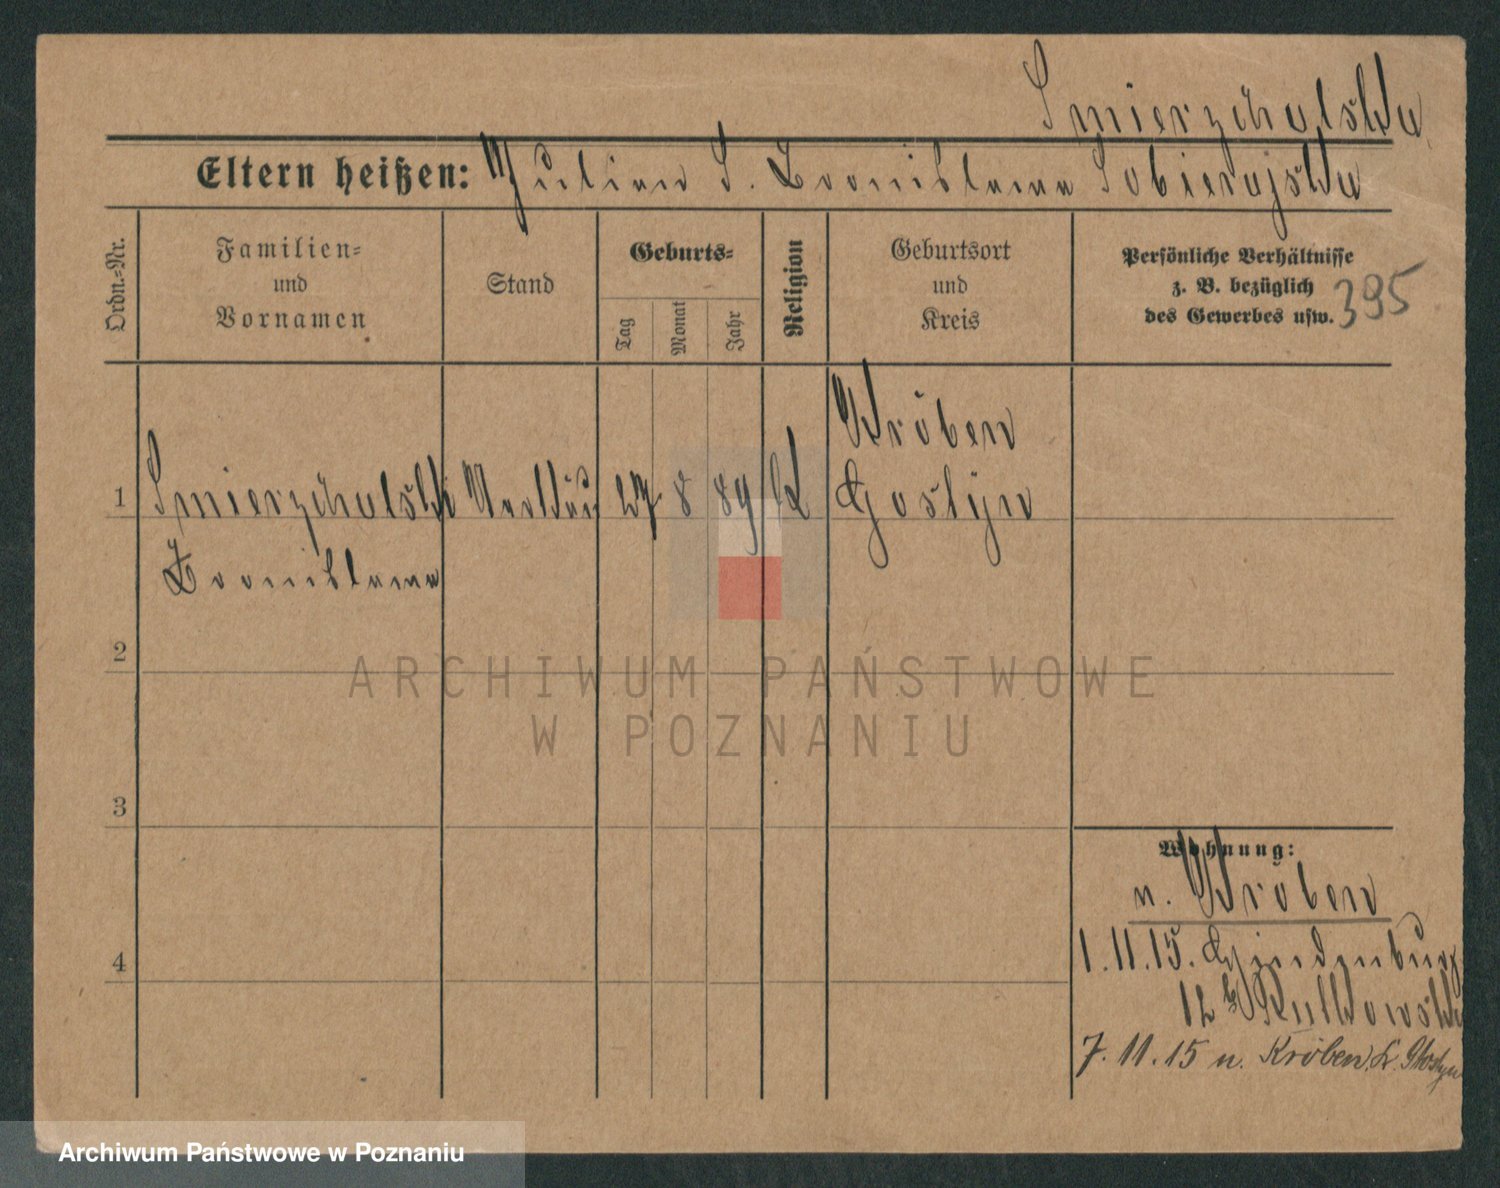 Smierzchalska
Eltern heißen: Julian S. Bronislawa Sobierajska
Ordn.-Nr.
Familien-
und
Vornamen
Stand
Geburts-
Tag
Monat
Jahr
Religion
Geburtsort
und
Kreis
Persönliche Verhältnisse
z. B. bezüglich
des Gewerbes usw.
395
1 Smierzchalski 27 8 89 K Kröben
Gostyn
Bronislawa
2
3
4
Wohnung:
n. Kröben
1.11.15. Hindenburg
12 b/ Kulkowski
7.11.15 n. Kröben, K. Gostyn
ARCHIWUM PAŃSTWOWE
W POZNANIU
Archiwum Państwowe w Poznaniu